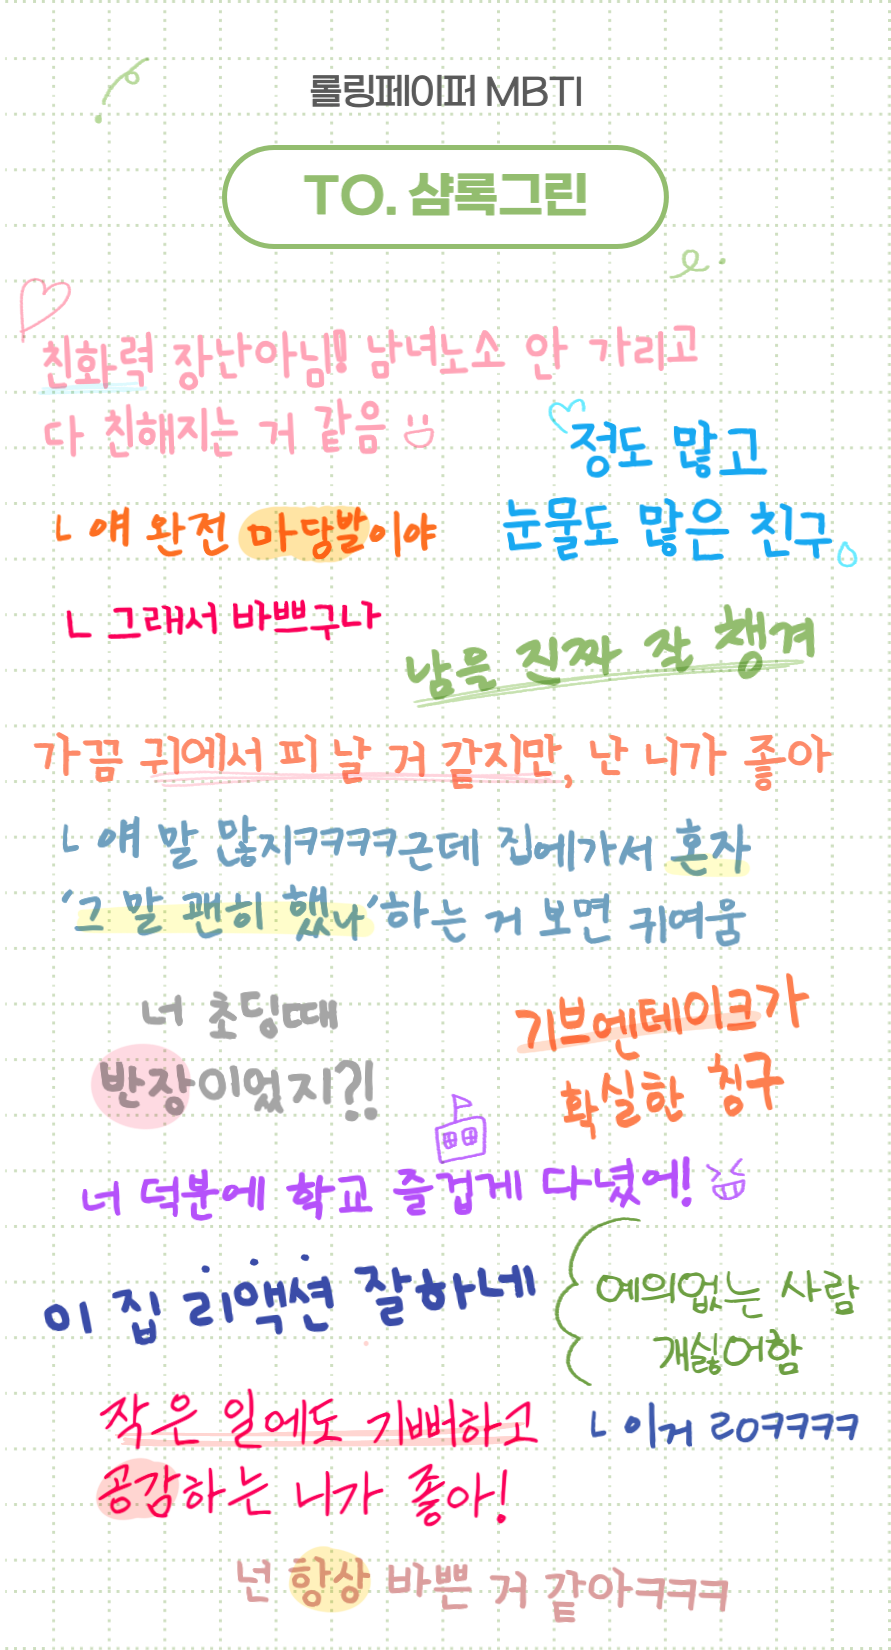 롤링페이퍼 MBTI
TO. 샴록그린
친화력 장난아님! 남녀노소 안 가리고
다 친해지는 거 같음
ㄴ 얘 완전 마당발이야
ㄴ 그래서 바쁘구나
정도 많고
눈물도 많은 친구
남을 진짜 잘 챙겨
가끔 귀에서 피 날 거 같지만, 난 니가 좋아
ㄴ 얘 말 많지ㅋㅋㅋㅋ근데 집에가서 혼자
'그 말 괜히 했나'하는 거 보면 귀여움
너 초딩때
반장이었지?!
기브엔테이크가
확실한 칭구
너 덕분에 학교 즐겁게 다녔어!
이 집 리액션 잘하네
예의없는 사람
개싫어함
ㄴ 이거 ㄹㅇㅋㅋㅋㅋ
작은 일에도 기뻐하고
공감하는 니가 좋아!
넌 항상 바쁜 거 같아ㅋㅋㅋ